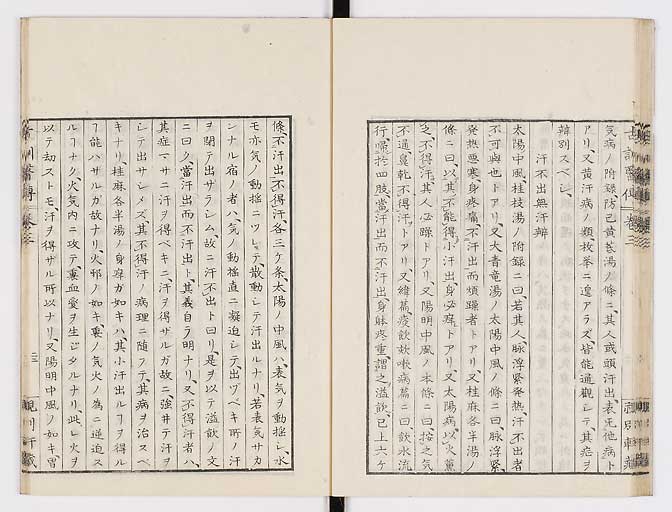 気病ノ附録防已黄蓍湯ノ條ニ其人或頭汗出表无他病ト
アリ又黄汗病ノ類枚挙ニ遑アラズ皆能通觀シテ其症ヲ
辨別スベシ
汗不出無汗辨
太陽中風桂枝湯ノ附録ニ曰若其人脉浮緊発熱汗不出者
不可與也トアリ又大青竜湯ノ太陽中風ノ條ニ曰脉浮緊
発熱悪寒身疼痛不汗出而煩躁者トアリ又桂麻各半湯ノ
條ニ曰以其不能得小汗出身必痒トアリ又太陽病以火薫
之不得汗其人必躁トアリ又陽明中風ノ本條ニ曰按之気
不通鼻乾不得汗トアリ又痰飲欬嗽病篇ニ曰飲水流
行歸於四肢當汗出而不汗出身躰疼重謂之溢飲已上六ケ
條不汗出不得汗各三ケ条太陽ノ中風ハ表気ヲ動揺シ水
モ亦気ノ動揺ニツレテ散動シテ汗出ルナリ若表気サカ
ンナル宿ノ者ハ気ノ動揺直ニ凝迫シテ出ヅベキ所ノ汗
ヲ閉テ出ザラシム故ニ汗不出ト曰リ是ヲ以テ溢飲ノ文
ニ曰ク當汗出而不汗出ト其義自ラ明ナリ又不得汗者ハ
其症マサニ汗ヲ得ベキニ汗ヲ得ザルガ故ニ強井テ汗ヲ
シテ出サシメズ其不得汗ノ病理ニ随フテ其病ヲ治スベ
キナリ桂麻各半湯ノ身痒ガ如キハ其小汗出ルヿヲ得ル
ヿ能ハザルガ故ナリ火邪ノ如キ裏ノ気火ノ為ニ逆迫ス
ルヿナク火気内ニ攻テ裏血愛ヲ生ビタルナリ此レ火ヲ
以テ却ストモ汗ヲ得ザル所以ナリ又陽明中風ノ如キ胃